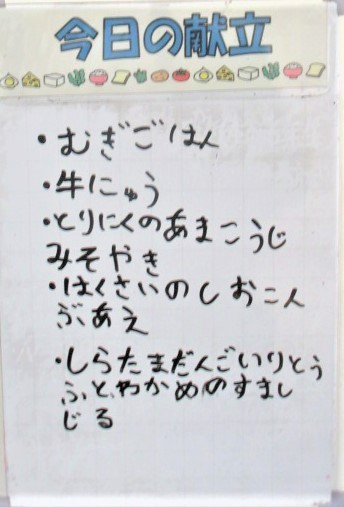 今日の献立
・むぎごはん
・牛にゅう
・とりにくのあまこうじ
みそやき
・はくさいのしおこん
ぶあえ
・しらたまだんごいりとう
ふとわかめのすまし
じる